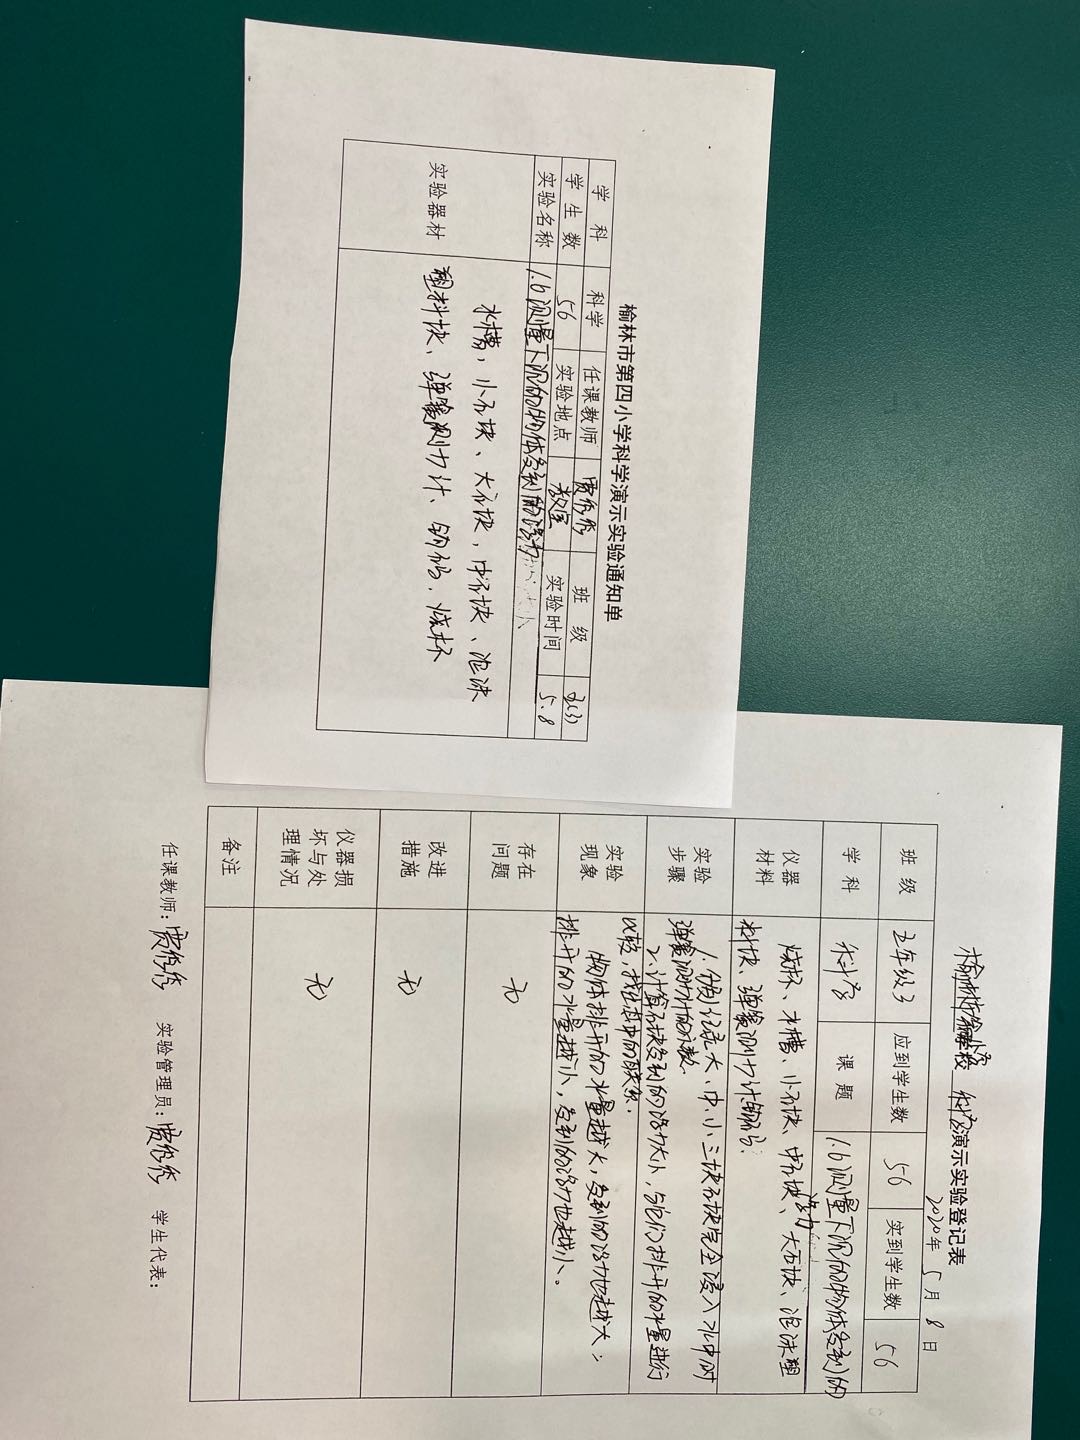 榆林市第四小学科学演示实验通知单
学 科 科学 任课教师 班 级 五(3)
学 生 数 56 实验地点 教室 实验时间 5.8
实验名称 1.6测量下沉的物体受到的浮力
实验器材
水槽，小石块、大石块，中石块、泡沫
塑料块、弹簧测力计、钩码，烧杯
校 科学演示实验登记表
2020年 5月 8日
班 级 五年级3 应到学生数 56 实到学生数 56
学 科 科学 课 题 1.6测量下沉的物体受到的
浮力
仪器材料
烧杯、水槽、小石块、中石块、大石块、泡沫塑
料块、弹簧测力计钩码.
实验步骤
1.分别记录大、中、小三块石块完全浸入水中时
弹簧测力计的读数.
2.计算石块受到的浮力大小，与它们排开的水量进行
比较，找出其中的联系.
实验现象
物体排开的水量越大，受到的浮力也越大；
排开的水量越小，受到的浮力也越小。
存在问题 无
改进措施 无
仪器损坏与处理情况 无
备注
任课教师： 实验管理员： 学生代表：